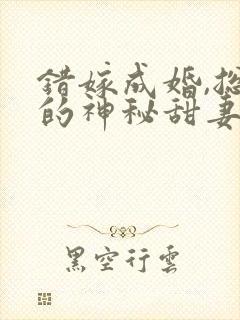 错嫁成婚,总
的神秘甜妻
黑空行雲